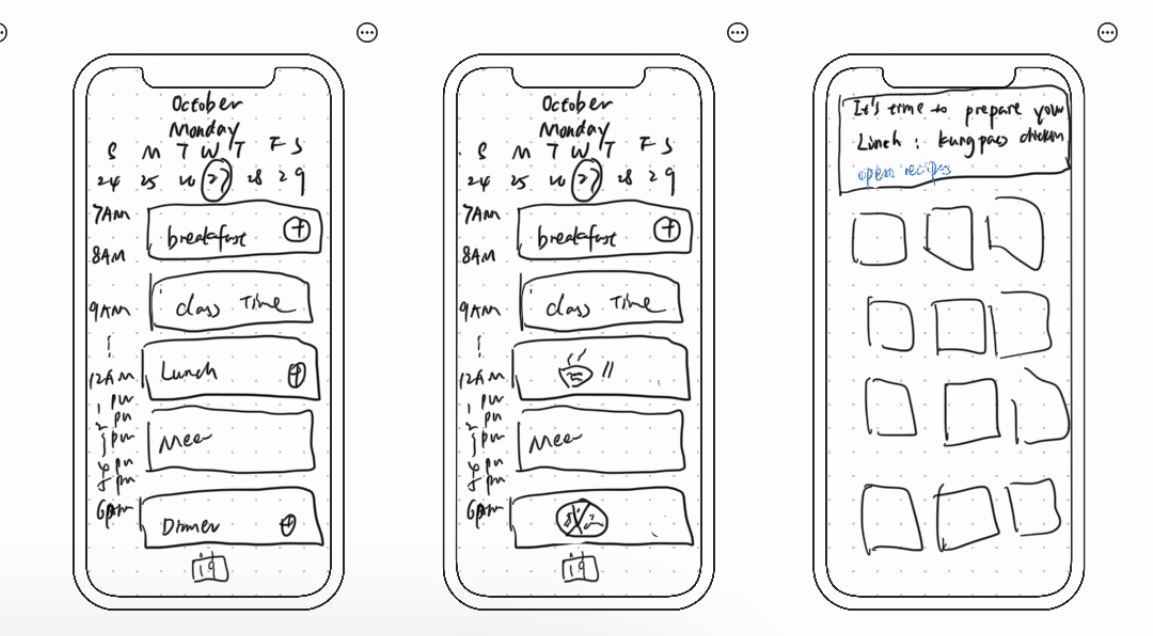 October
Monday
S M T W T F S
24 25 26 27 28 29
7AM
breakfast +
8AM
9AM
class Time
Lunch +
12AM
1 pm
2 pm
3 pm
Meer
4 pm
5 pm
6pm
Dinner +
October
Monday
S M T W T F S
24 25 26 27 28 29
7AM
breakfast +
8AM
9AM
class Time
12AM
1 pm
2 pm
3 pm
Meer
4 pm
5 pm
6pm
It's time to prepare your
Linch : kung pao chicken
open recipes